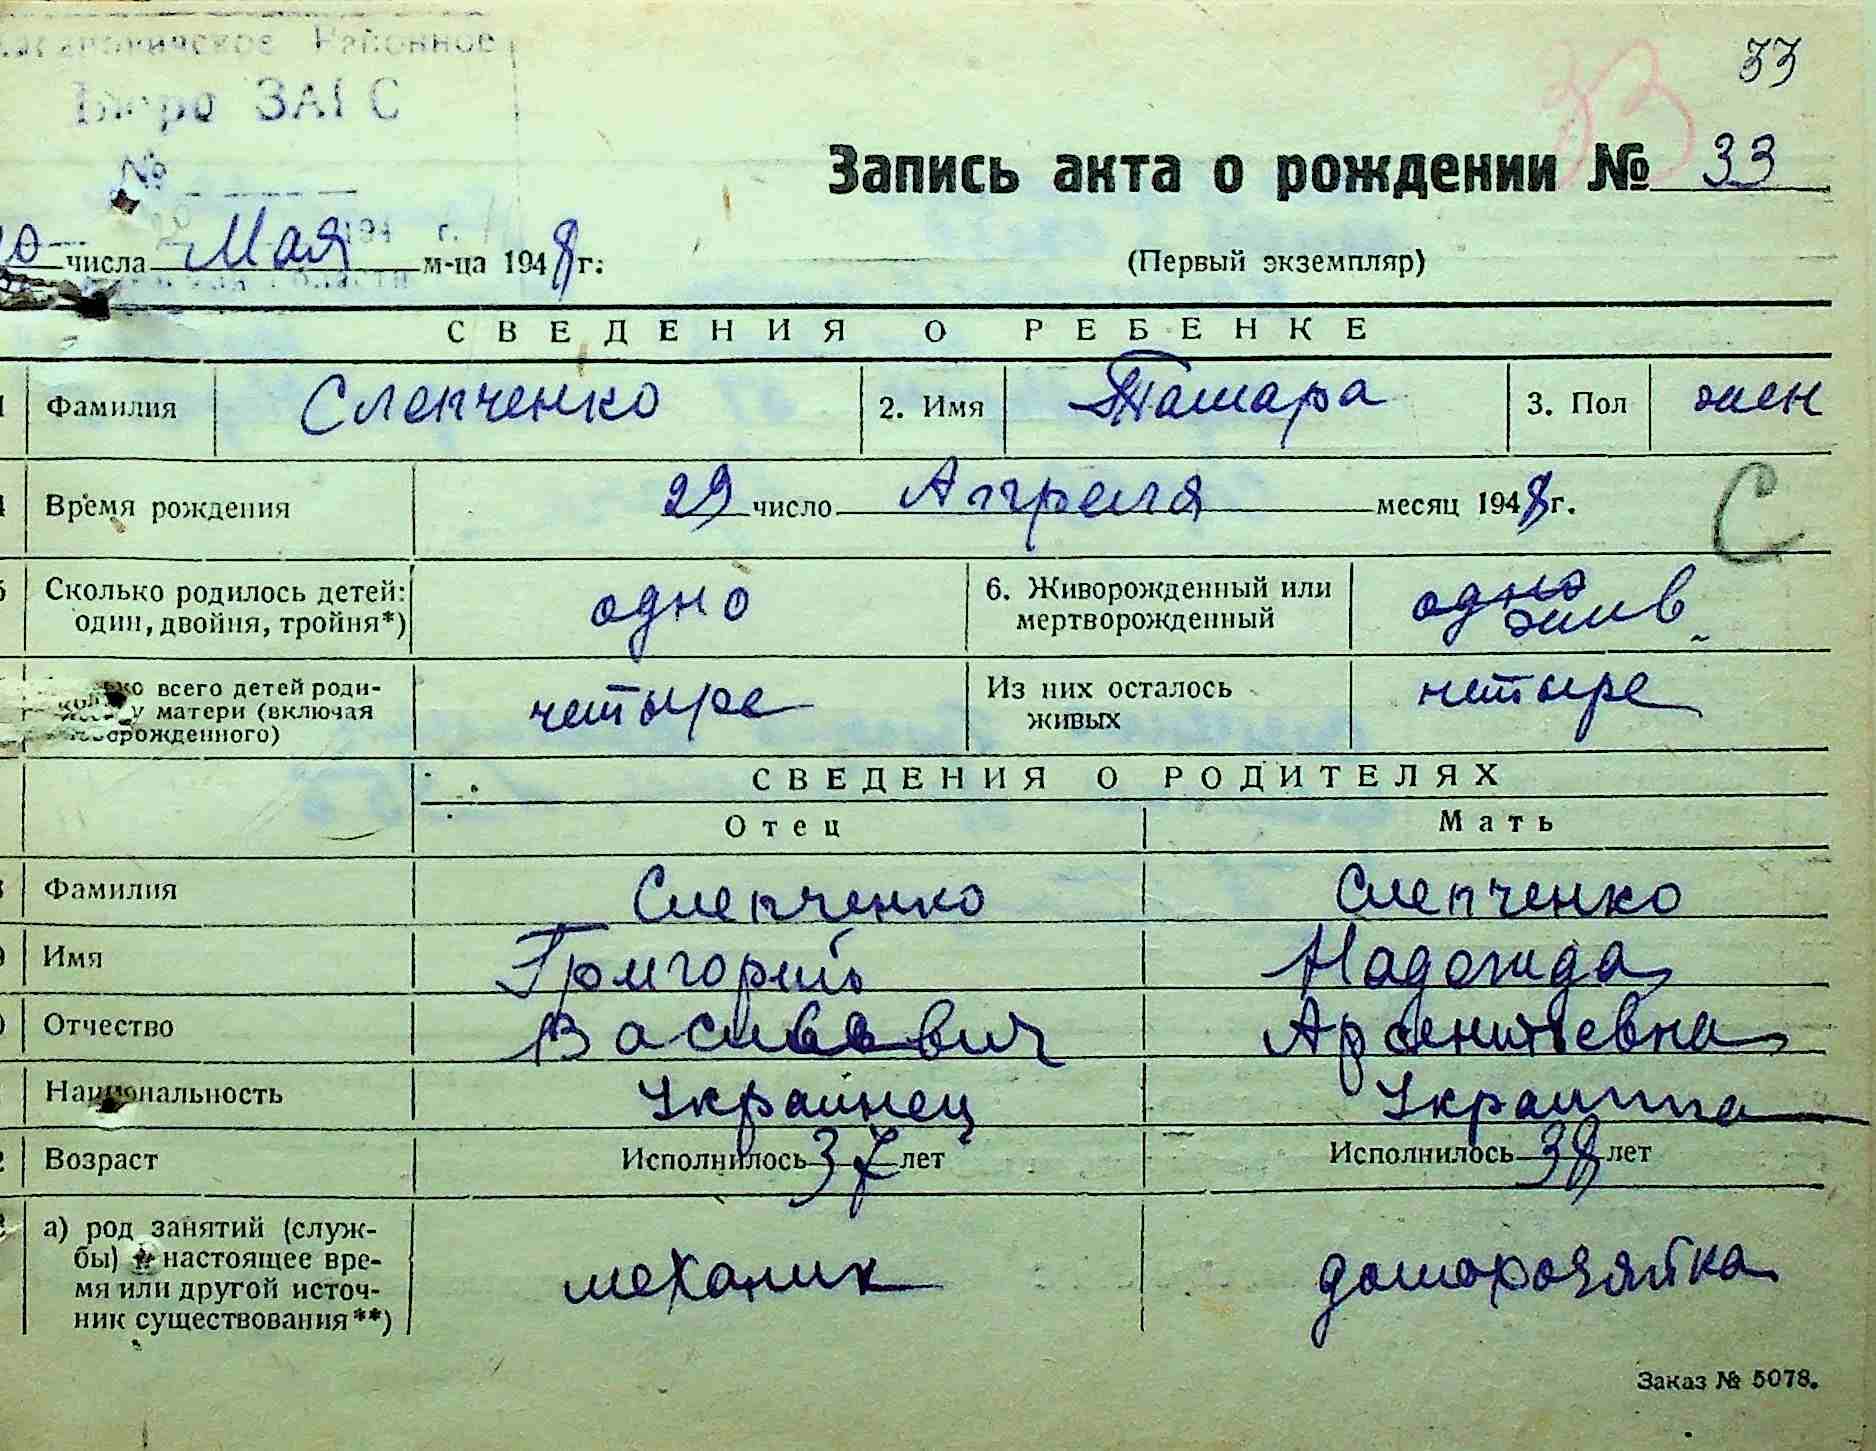 Районное
Бюро ЗАГС
№
33
33
Запись акта о рождении № 33
числа Мая м-ца 1948 г.
(Первый экземпляр)
СВЕДЕНИЯ О РЕБЕНКЕ
Фамилия Слепченко 2. Имя Тамара 3. Пол жен
Время рождения 29 число Апреля месяц 1948 г.
С
Сколько родилось детей: один, двойня, тройня*) одно 6. Живорожденный или мертворожденный одно жив
всего детей роди- у матери (включая рожденного) четыре Из них осталось живых четыре
СВЕДЕНИЯ О РОДИТЕЛЯХ
Отец Мать
Фамилия Слепченко Слепченко
Имя Григорий Надежда
Отчество Васильевич Арсентьевна
Национальность Украинец Украинка
Возраст Исполнилось 37 лет Исполнилось 38 лет
а) род занятий (служ-
бы) в настоящее вре-
мя или другой источ-
ник существования**) механик домохозяйка
Заказ № 5078.